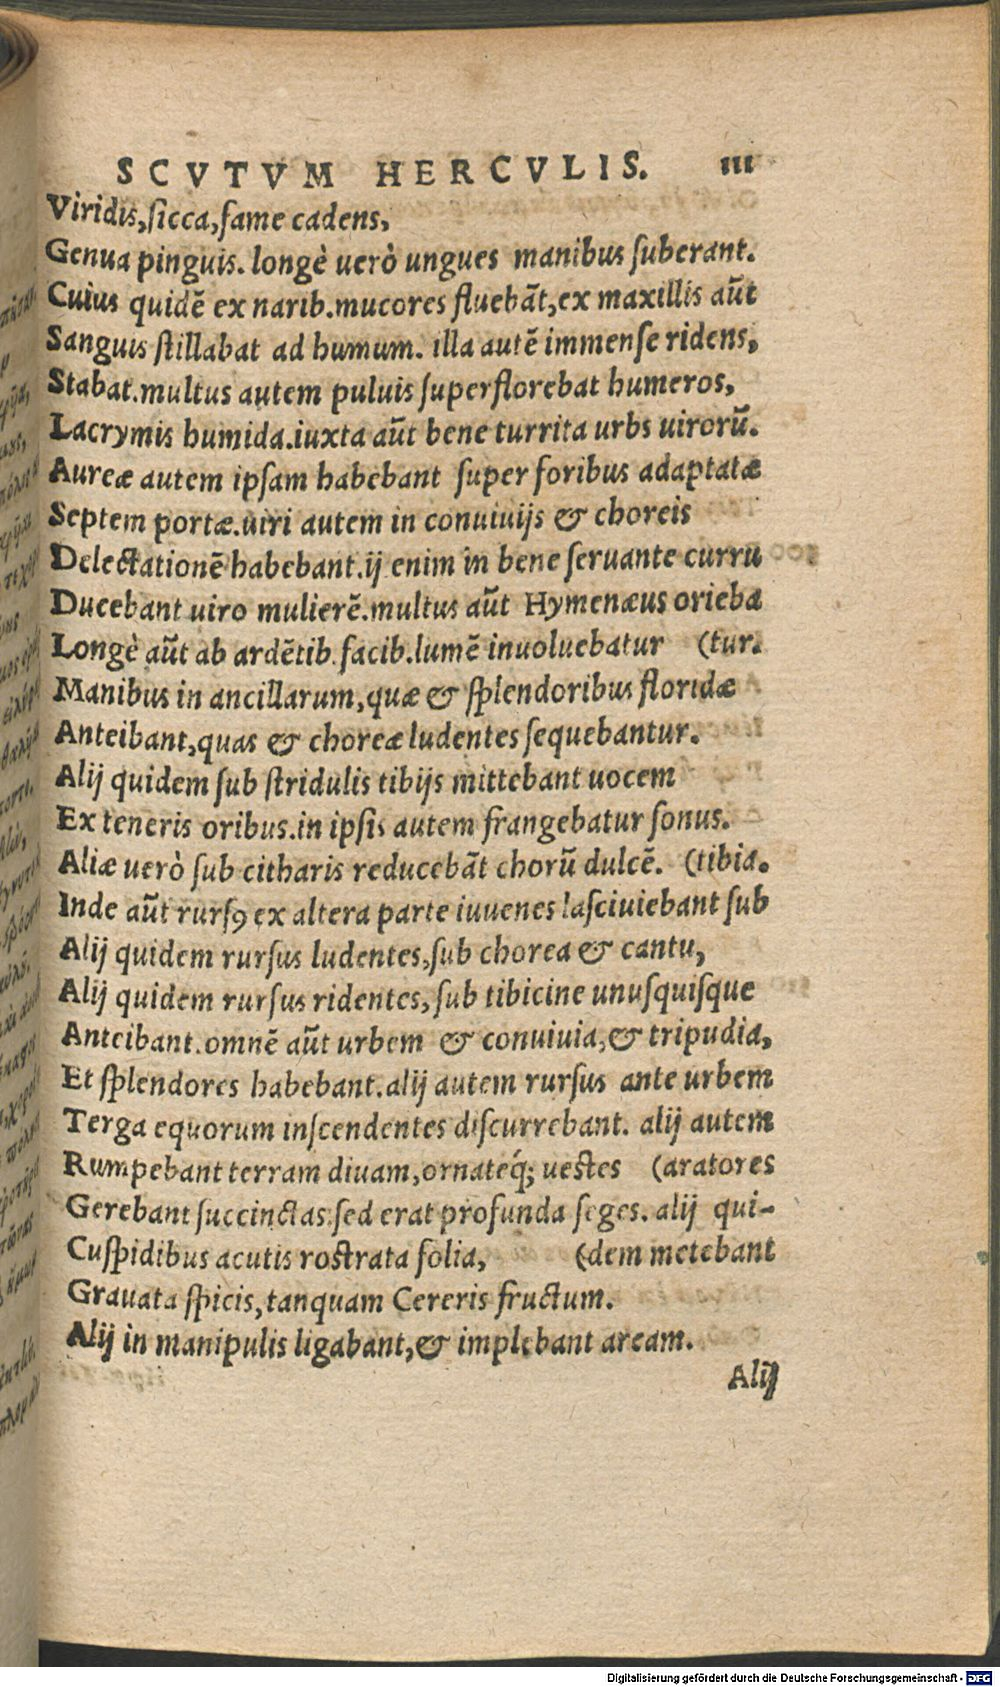 SCVTVM HERCVLIS. 111
Viridis,sicca,fame cadens,
Genua pinguis. longè uerò ungues manibus suberant.
Cuius quidẽ ex narib.mucores fluebãt,ex maxillis aũt
Sanguis stillabat ad humum. illa autẽ immense ridens,
Stabat.multus autem puluis superflorebat humeros,
Lacrymis humida.iuxta aũt bene turrita urbs uirorũ.
Aureæ autem ipsam habebant super foribus adaptatæ
Septem portæ.uiri autem in conuiuijs & choreis
Delectationẽ habebant.ij enim in bene seruante curru
Ducebant uiro mulierẽ.multus aũt Hymenæus orieba
Longè aũt ab ardẽtib.facib.lumẽ inuoluebatur (tur.
Manibus in ancillarum,quæ & splendoribus floridæ
Anteibant,quas & choreæ ludentes sequebantur.
Alij quidem sub stridulis tibijs mittebant uocem
Ex teneris oribus.in ipsis autem frangebatur sonus.
Aliæ uerò sub citharis reducebãt chorũ dulcẽ. (tibia.
Inde aũt rursꝯ ex altera parte iuuenes lasciuiebant sub
Alij quidem rursus ludentes,sub chorea & cantu,
Alij quidem rursus ridentes, sub tibicine unusquisque
Anteibant.omnẽ aũt urbem & conuiuia,& tripudia,
Et splendores habebant.alij autem rursus ante urbem
Terga equorum inscendentes discurrebant. alij autem
Rumpebant terram diuam,ornateq́; uestes (aratores
Gerebant succinctas.sed erat profunda seges. alij qui-
Cuspidibus acutis rostrata folia, (dem metebant
Grauata spicis,tanquam Cereris fructum.
Alij in manipulis ligabant,& implebant aream.
Alij
Digitalisierung gefördert durch die Deutsche Forschungsgemeinschaft - DFG